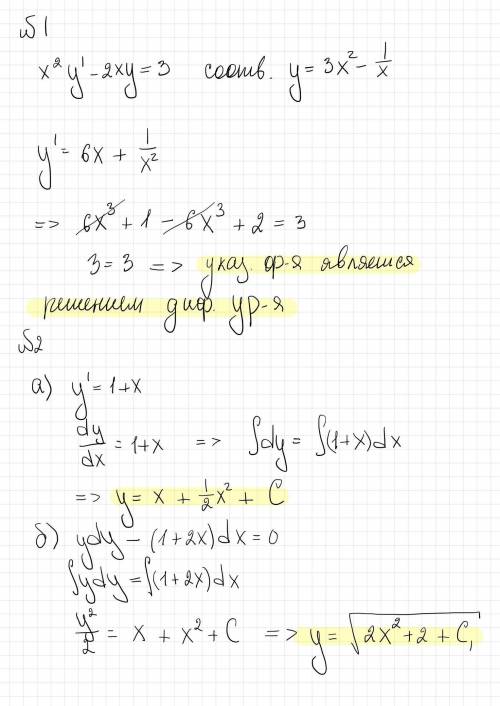 №1
x² y' - 2xy = 3 соотв. y = 3x² - 1/x
y' = 6x + 1/x²
=> 6x³ + 1 - 6x³ + 2 = 3
3 = 3 => указ. ф-я является
решением диф. ур-я
№2
а) y' = 1+x
dy/dx = 1+x => ∫dy = ∫(1+x)dx
=> y = x + 1/2 x² + C
б) ydy - (1+2x)dx = 0
∫ydy = ∫(1+2x)dx
y²/2 = x + x² + C => y = √(2x² + 2 + C₁)